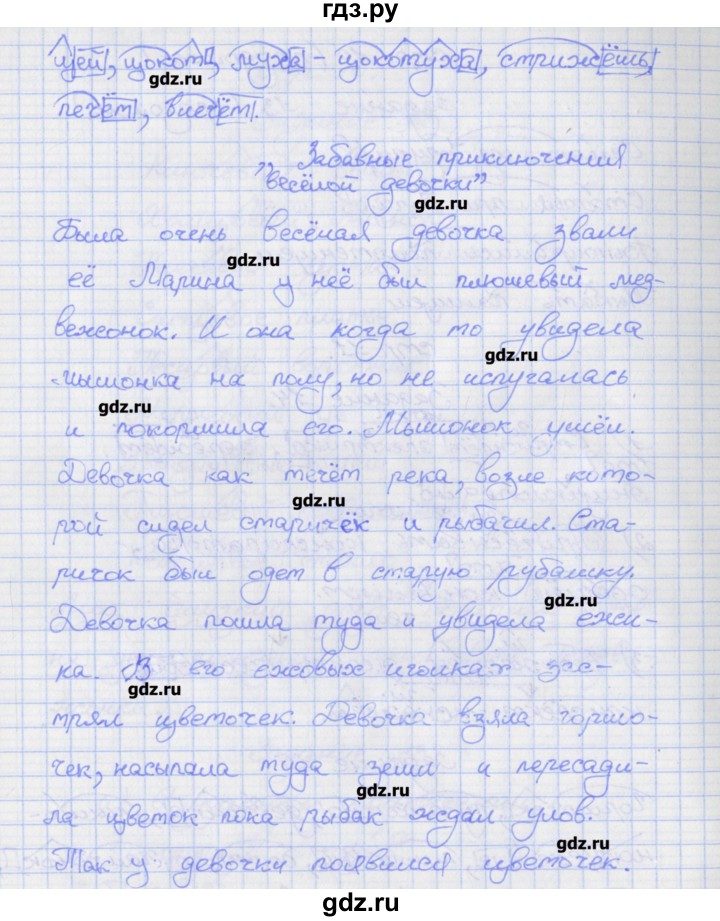 гдз.ру
щей, цокот, муха - цокотуха, стрижёшь,
gdz.ru
печём, влечём.
Забавные приключения
"весёлой девочки"
gdz.ru
Была очень весёлая девочка звали
gdz.ru
её Марина у неё был плюшевый мед-
вежонок. И она когда то увидела
gdz.ru
мышонка на полу, но не испугалась
gdz.ru
и покормила его. Мышонок ушёл.
Девочка как течёт река, возле кото-
gdz.ru
рой сидел старичёк и рыбачил. Ста-
ричок был одет в старую рубашку.
gdz.ru
Девочка пошла туда и увидела ежи-
ка. В его ежовых иголках зас-
gdz.ru
трял цветочек. Девочка взяла горшо-
чек, насыпала туда земли и пересади-
gdz.ru
ла цветок пока рыбак ждал улов.
gdz.ru
Так у девочки появился цветочек.
gdz.ru